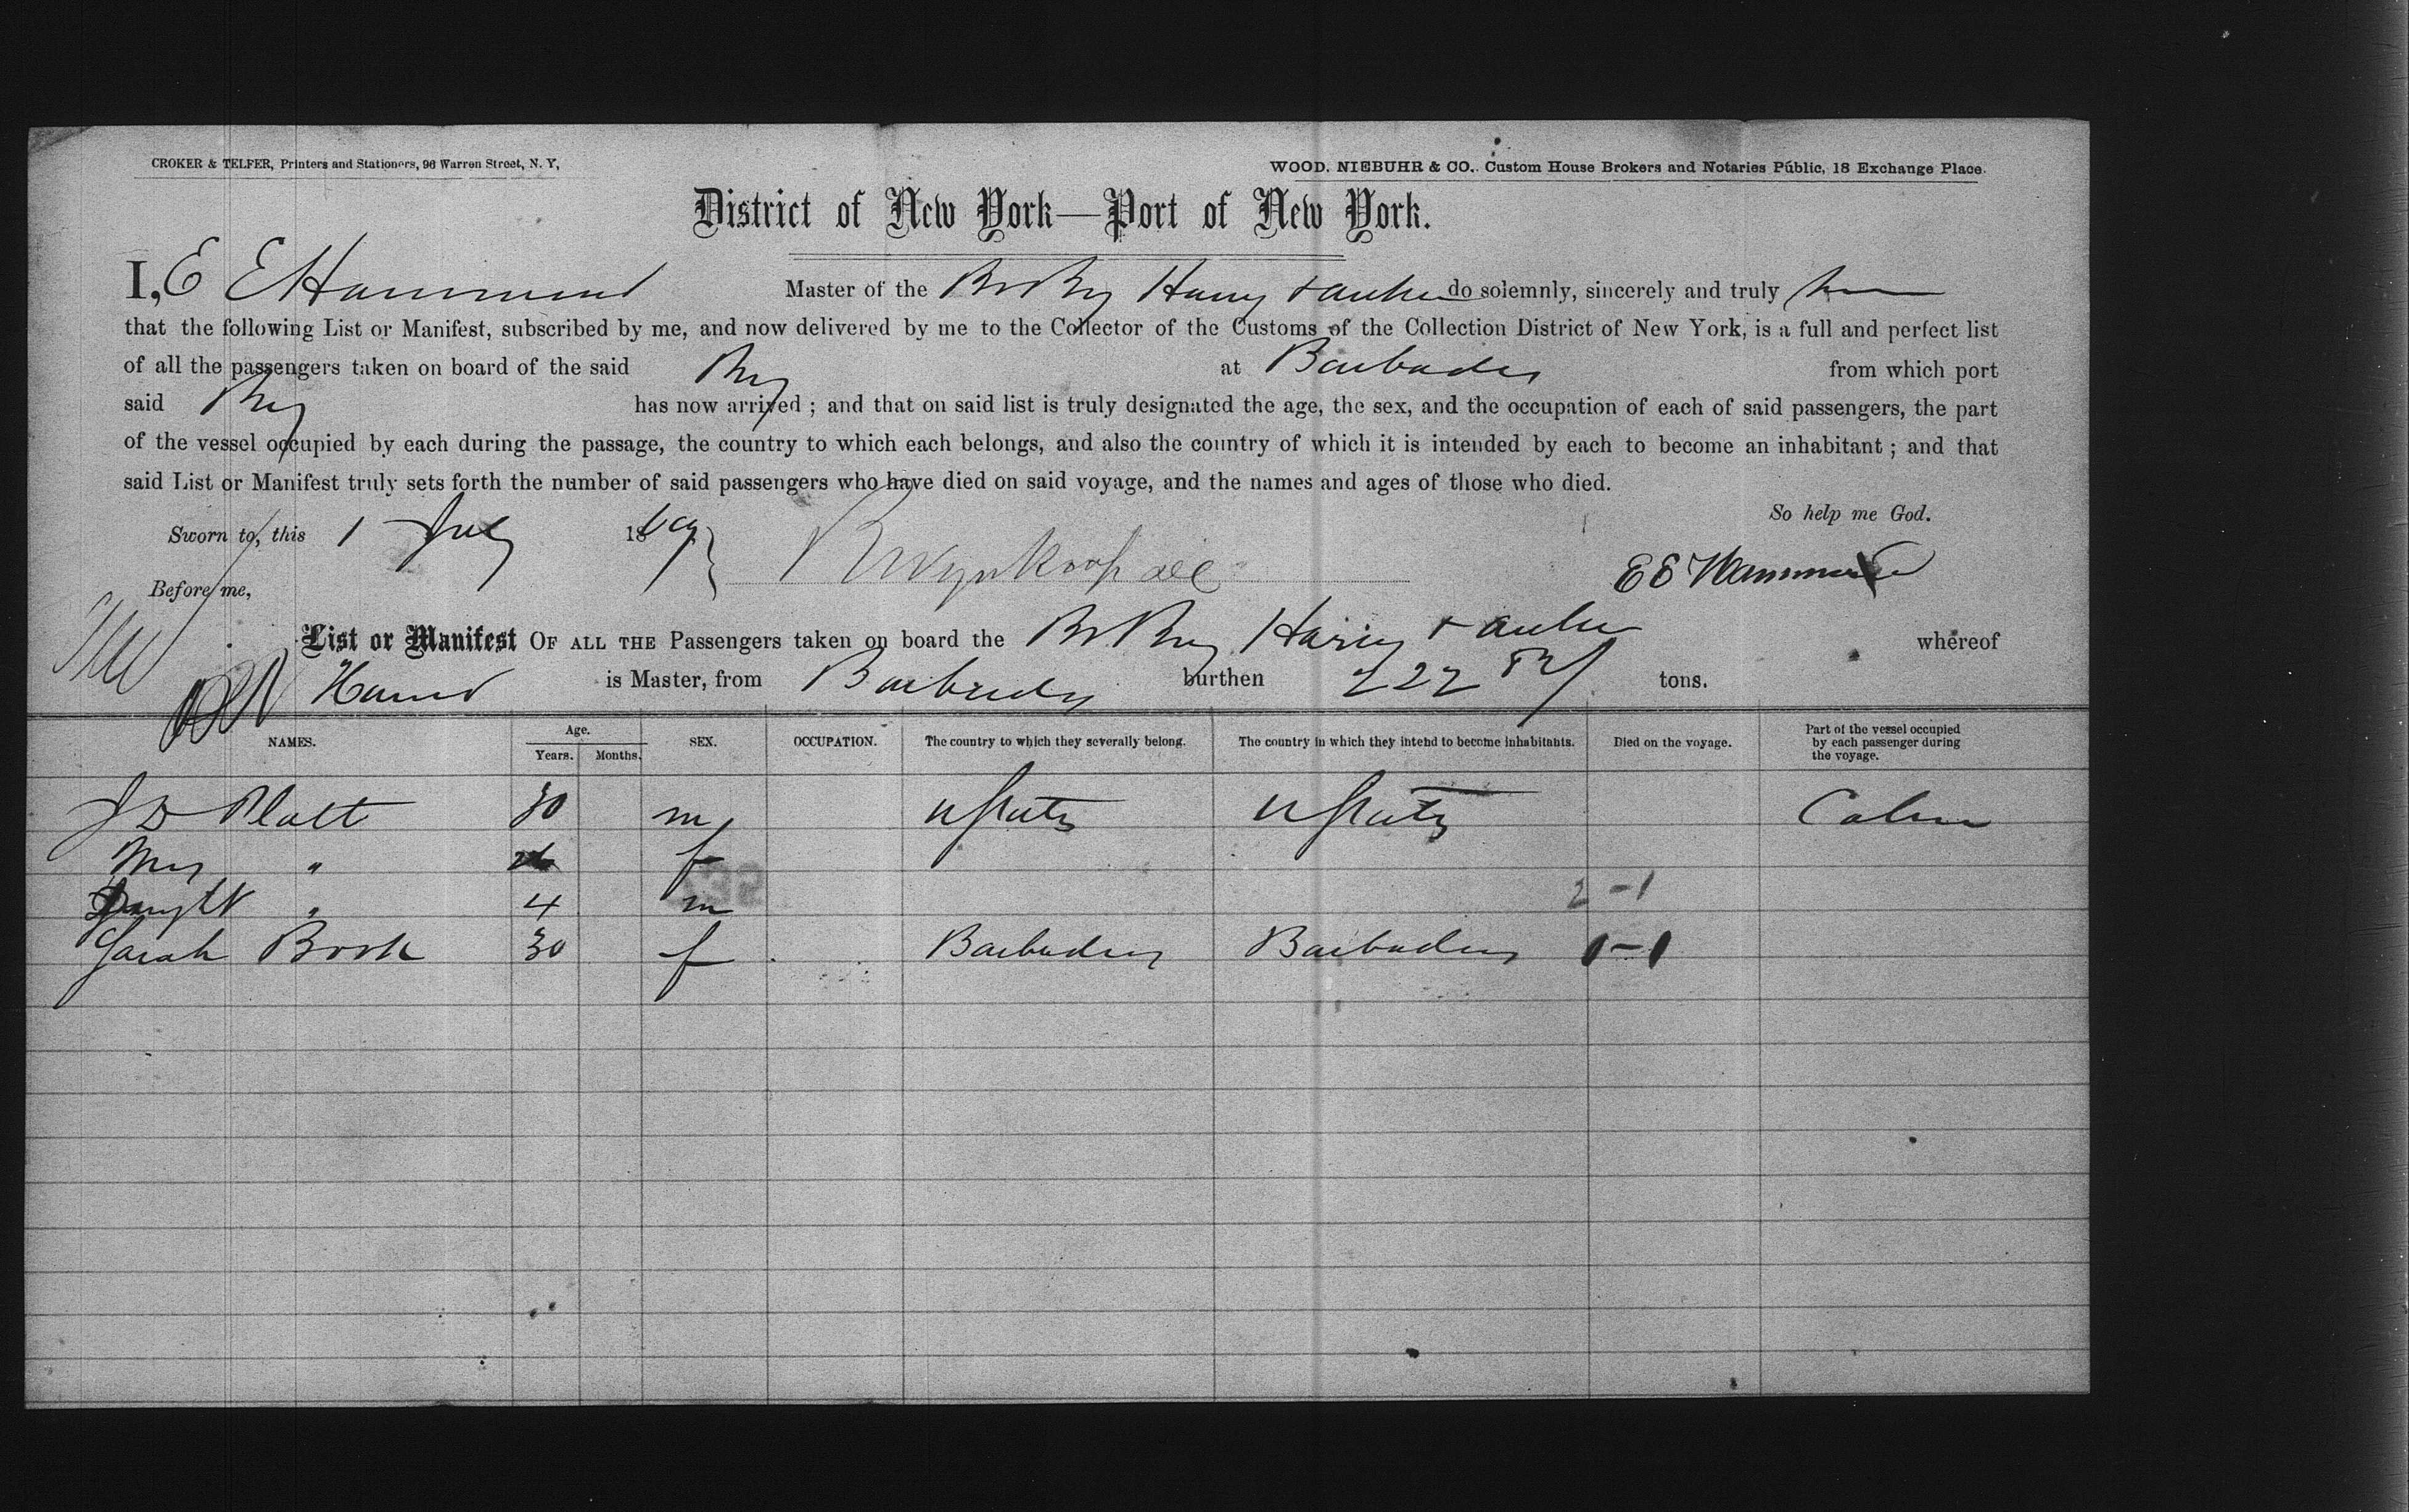 CROKER & TELFER, Printers and Stationers, 96 Warren Street, N. Y,
WOOD, NIEBUHR & CO., Custom House Brokers and Notaries Public, 18 Exchange Place.
District of New York—Port of New York.
I, E E Hammond Master of the Br Brg Harry & do solemnly, sincerely and truly
that the following List or Manifest, subscribed by me, and now delivered by me to the Collector of the Customs of the Collection District of New York, is a full and perfect list
of all the passengers taken on board of the said Brg at Barbados from which port
said Brg has now arrived ; and that on said list is truly designated the age, the sex, and the occupation of each of said passengers, the part
of the vessel occupied by each during the passage, the country to which each belongs, and also the country of which it is intended by each to become an inhabitant ; and that
said List or Manifest truly sets forth the number of said passengers who have died on said voyage, and the names and ages of those who died.
So help me God.
Sworn to, this 1 July 1869
E E Hammond
Before me,
List or Manifest OF ALL THE Passengers taken on board the Br Brg Harry & whereof
is Master, from Barbados burthen 222 tons.
NAMES. Age. Years. Months. SEX. OCCUPATION. The country to which they severally belong. The country in which they intend to become inhabitants. Died on the voyage. Part of the vessel occupied by each passenger during the voyage.
J D Platt 30 m U States U States Cabin
Mrs " f
Dwight " 4 m
2 - 1
Sarah 30 f Barbados Barbados 1 - 1